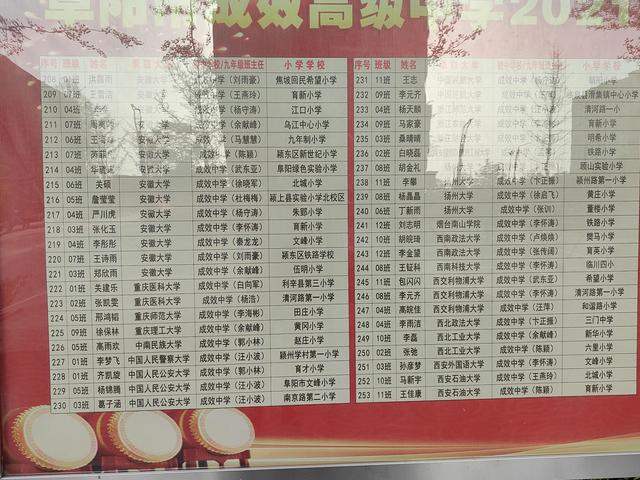 阜阳市成效高级中学2021
序号 班级 姓名 录取大学 初中学校/九年级班主任 小学学校
208 安徽大学 成效中学（刘雨豪） 焦坡回民希望小学
209 安徽大学 成效中学（王燕玲） 育新小学
210 04班 安徽大学 成效中学（杨守涛） 江口小学
211 07班 安徽大学 成效中学（余献峰） 乌江中心小学
212 06班 安徽大学 成效中学（马慧慧） 九年制小学
213 07班 安徽大学 成效中学（陈颖） 颍东区新世纪小学
214 04班 安徽大学 成效中学（武东亚） 阜阳绿色实验小学
215 06班 关硕 安徽大学 成效中学（徐晓军） 北城小学
216 05班 詹莹莹 安徽大学 成效中学（杜梅梅） 颍上县实验小学北校区
217 04班 严川虎 安徽大学 成效中学（杨守涛） 朱郢小学
218 03班 张化玉 安徽大学 成效中学（李怀涛） 育新小学
219 04班 李彤彤 安徽大学 成效中学（秦龙龙） 文峰小学
220 07班 王诗雨 安徽大学 成效中学（刘雨豪） 颍东区铁路学校
221 03班 郑欣雨 安徽大学 成效中学（余献峰） 伍明小学
222 01班 关建乐 重庆医科大学 成效中学（白向军） 利辛县第三小学
223 02班 张凯雯 重庆医科大学 成效中学（杨浩） 清河路第一小学
224 05班 邢鸿韬 重庆师范大学 成效中学（李海彬） 田庄小学
225 09班 徐保林 重庆理工大学 成效中学（余献峰） 黄冈小学
226 05班 高雨欢 中南民族大学 成效中学（郭小林） 赵庄小学
227 01班 李梦飞 中国人民警察大学 成效中学（汪小波） 颍州学村第一小学
228 01班 齐凯旋 中国人民公安大学 成效中学（郭小林） 育才小学
229 05班 杨锦腾 中国人民公安大学 成效中学（汪小波） 阜阳市文峰小学
230 03班 葛子涵 中国人民公安大学 成效中学（汪小波） 南京路第二小学
序号 班级 姓名
231 11班 王志
232 09班 李元齐 集镇中心小学
233 04班 杨天麟 清河路一小
234 09班 马家豪 育新小学
235 03班 聂晴晴 明希小学
236 02班 白晓磊 铁路小学
237 08班 胡金礼 顾山实验小学
238 11班 李攀 扬州大学 成效中学（卞正振） 颍州路第一小学
239 08班 杨晶晶 扬州大学 成效中学（徐启飞） 黄庄小学
240 06班 丁新雨 扬州大学 成效中学（张训） 董楼小学
241 12班 刘志明 烟台南山学院 成效中学（李怀涛） 铁路小学
242 10班 胡皖琦 西南政法大学 成效中学（卢焕焕） 樊马小学
243 12班 李金望 西南政法大学 成效中学（张传阔） 育英小学
244 08班 王钲科 西南科技大学 成效中学（李怀涛） 临川四小
245 11班 包闪闪 西交利物浦大学 成效中学（武东亚） 希望小学
246 08班 李元齐 西交利物浦大学 成效中学（李怀涛） 清河路第一小学
247 04班 高皖佳 西交利物浦大学 成效中学（汪萍） 和谐路小学
248 04班 李雨洁 西北政法大学 成效中学（卞正振） 三门中学
249 10班 李磊 西北工业大学 成效中学（余献峰） 新华小学
250 02班 张弛 西北工业大学 成效中学（陈颖） 六里小学
251 03班 孙彦梦 西安外国语大学 成效中学（李怀涛） 文峰小学
252 10班 马新宇 西安石油大学 成效中学（王燕玲） 北城小学
253 11班 王佳康 西安石油大学 成效中学（陈颖） 育新小学